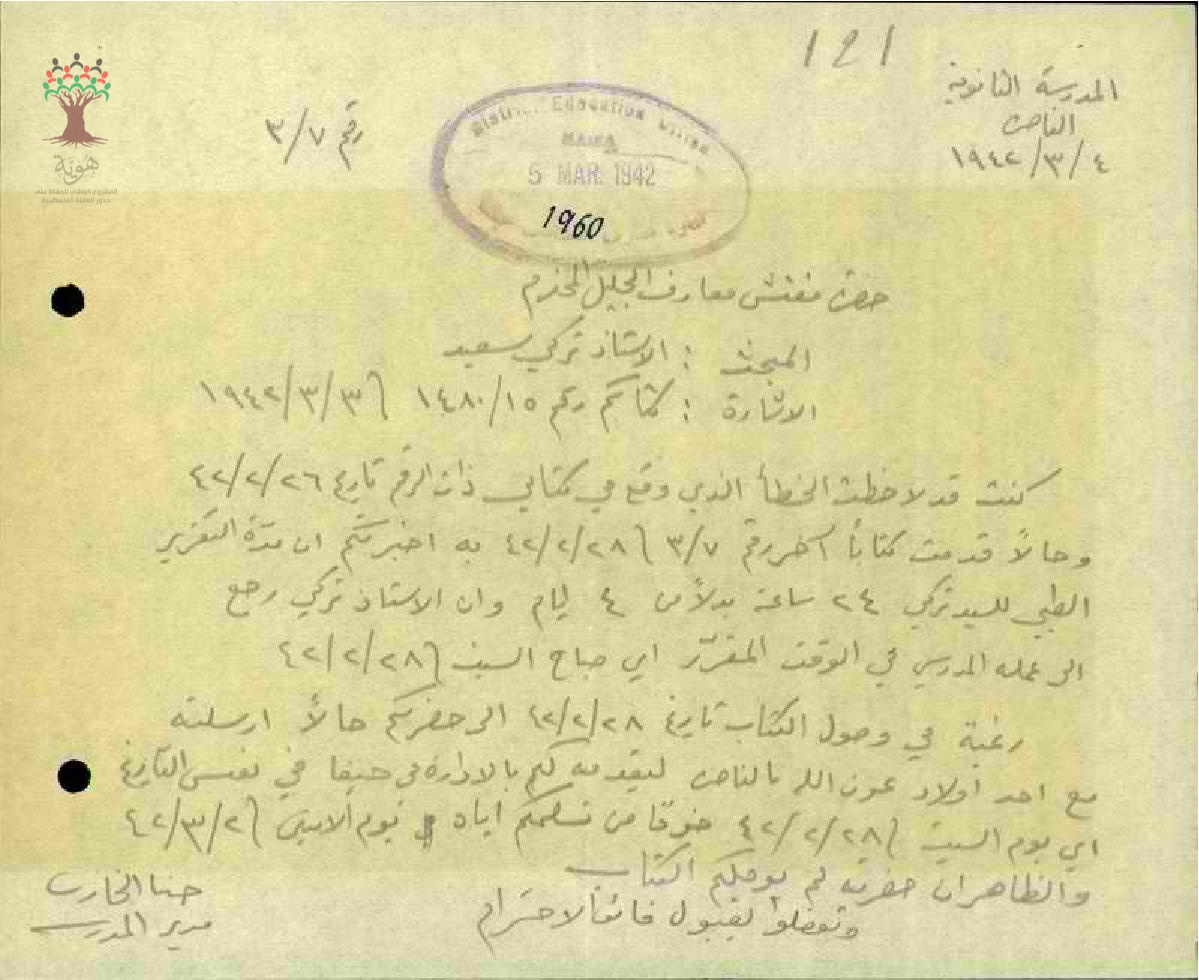 121
المدرسة الثانوية
الناصرة
١٩٤٢/٣/٤
رقم ٣/٧
District Education Office
HAIFA
5 MAR. 1942
1960
هوية
المشروع الوطني للحفاظ على
جذور العائلة الفلسطينية
حضرة مفتش معارف الجليل المحترم
المبحث : الاستاذ تركي سعيد
الاشارة : كتابكم رقم ١٤٨٠/١٥ ١٩٤٢/٣/٣
كنت قد لاحظت الخطأ الذي وقع في كتابي ذات الرقم تاريخ ٤٢/٢/٢٦
وحالاً قدمت كتاباً آخر رقم ٣/٧ ٤٢/٢/٢٨ به اخبرتكم ان مدة التقرير
الطبي للسيد تركي ٢٤ ساعة بدلاً من ٤ ايام وان الاستاذ تركي رجع
الى عمله المدرسي في الوقت المقرّر اي صباح السبت ٤٢/٢/٢٨
رغبة في وصول الكتاب تاريخ ٤٢/٢/٢٨ الى حضرتكم حالاً ارسلته
مع احد اولاد عون الله بالناصرة ليقدمه لكم بالادارة في حيفا في نفس التاريخ
اي يوم السبت ٤٢/٢/٢٨ خوفاً من تسلمكم اياه يوم الاثنين ٤٢/٣/٢
والظاهر ان حضرته لم يوصلكم الكتاب
وتفضلوا بقبول فائق الاحترام
حنا الخازن
مدير المدرسة